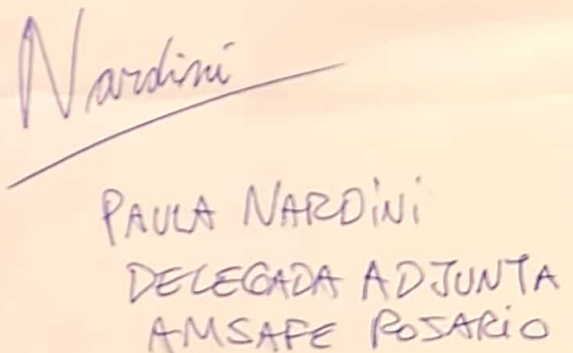 Nardini
PAULA NARDiNi
DELEGADA ADJUNTA
AMSAFE ROSARiO